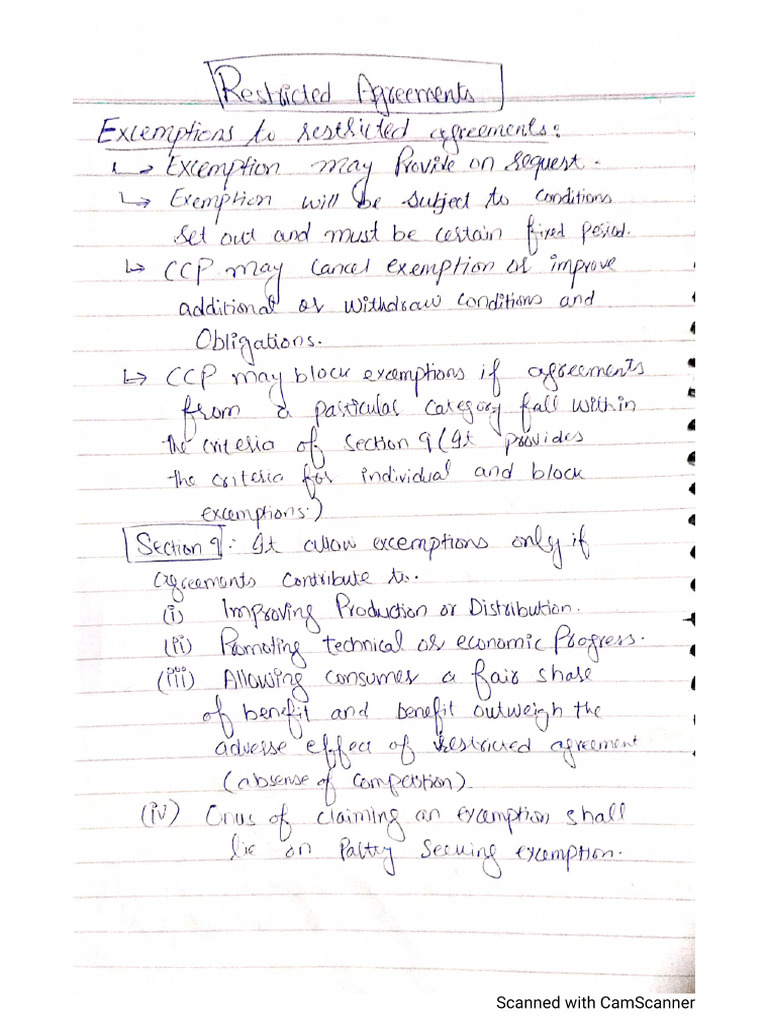 Restricted Agreements
Excemptions to restricted agreements:
↳ Excemption may Provide on request.
↳ Exemption will be subject to conditions
set out and must be certain fixed period.
↳ CCP may cancel exemption or improve
additional or withdraw conditions and
Obligations.
↳ CCP may block excemptions if agreements
from a particular category fall within
the criteria of section 9 (It provides
the criteria for individual and block
excemptions.)
Section 9: It allow excemptions only if
agreements contribute to.
(i) Improving Production or Distribution.
(ii) Promoting technical or economic Progress.
(iii) Allowing consumes a fair share
of benefit and benefit outweigh the
adverse effect of restricted agreement
(absense of competition).
(iv) Onus of claiming an excemption shall
lie on Paltry seeking exemption.
Scanned with CamScanner